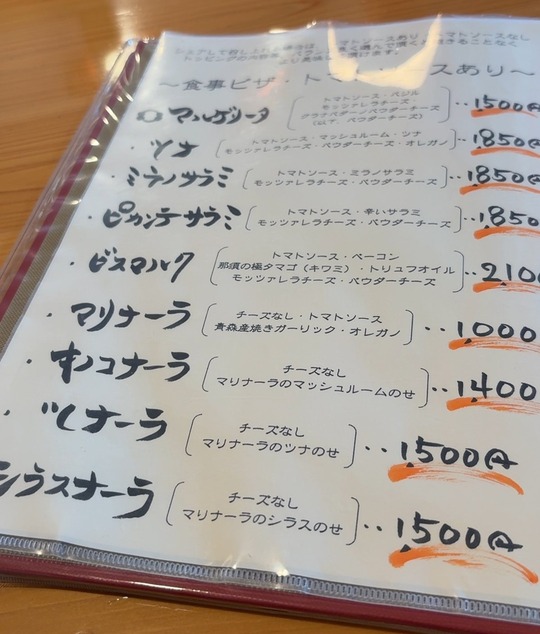 ～食事ピザ・トマトソースあり～
マルゲリータ
トマトソース・バジル
モッツァレラチーズ・
パウダーチーズ
‥1500円
・ツナ
トマトソース・マッシュルーム・ツナ
モッツァレラチーズ・パウダーチーズ・オレガノ
‥1850
・ミラノサラミ
トマトソース・ミラノサラミ
モッツァレラチーズ・パウダーチーズ
‥1850
・ピカンテサラミ
トマトソース・辛いサラミ
モッツァレラチーズ・パウダーチーズ
‥1850
・ビスマルク
トマトソース・ベーコン
那須の極タマゴ（キワミ）・トリュフオイル
モッツァレラチーズ・パウダーチーズ
‥2100
・マリナーラ
チーズなし・トマトソース
青森産焼きガーリック・オレガノ
‥1000
・キノコナーラ
チーズなし
マリナーラのマッシュルームのせ
‥1400
・ツナーラ
チーズなし
マリナーラのツナのせ
‥1500円
シラスナーラ
チーズなし
マリナーラのシラスのせ
‥1500円